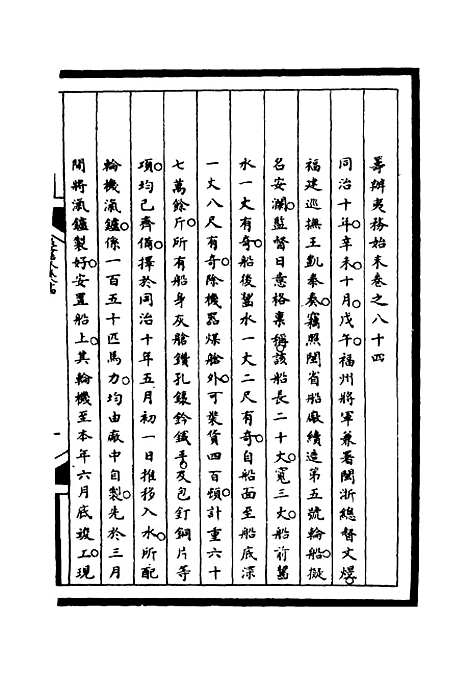 籌辦夷務始末卷之八十四
同治十年辛未十月戊午福州將軍兼署閩浙總督文煜
福建巡撫王凱泰奏竊照閩省船廠續造第五號輪船擬
名安瀾監督日意格稟稱該船長二十丈寬三丈船前喫
水一丈有奇船後喫水一丈二尺有奇自船面至船底深
一丈八尺有奇除機器煤艙外可裝貨四百頓計重六十
七萬餘斤所有船身灰艙鑽孔鑲鈐鐵手及包釘銅片等
項均已齊備擇於同治十年五月初一日推移入水所配
輪機滊鑪係一百五十匹馬力均由廠中自製先於三月
間將滊鑪製好安置船上其輪機至本年六月底竣工現